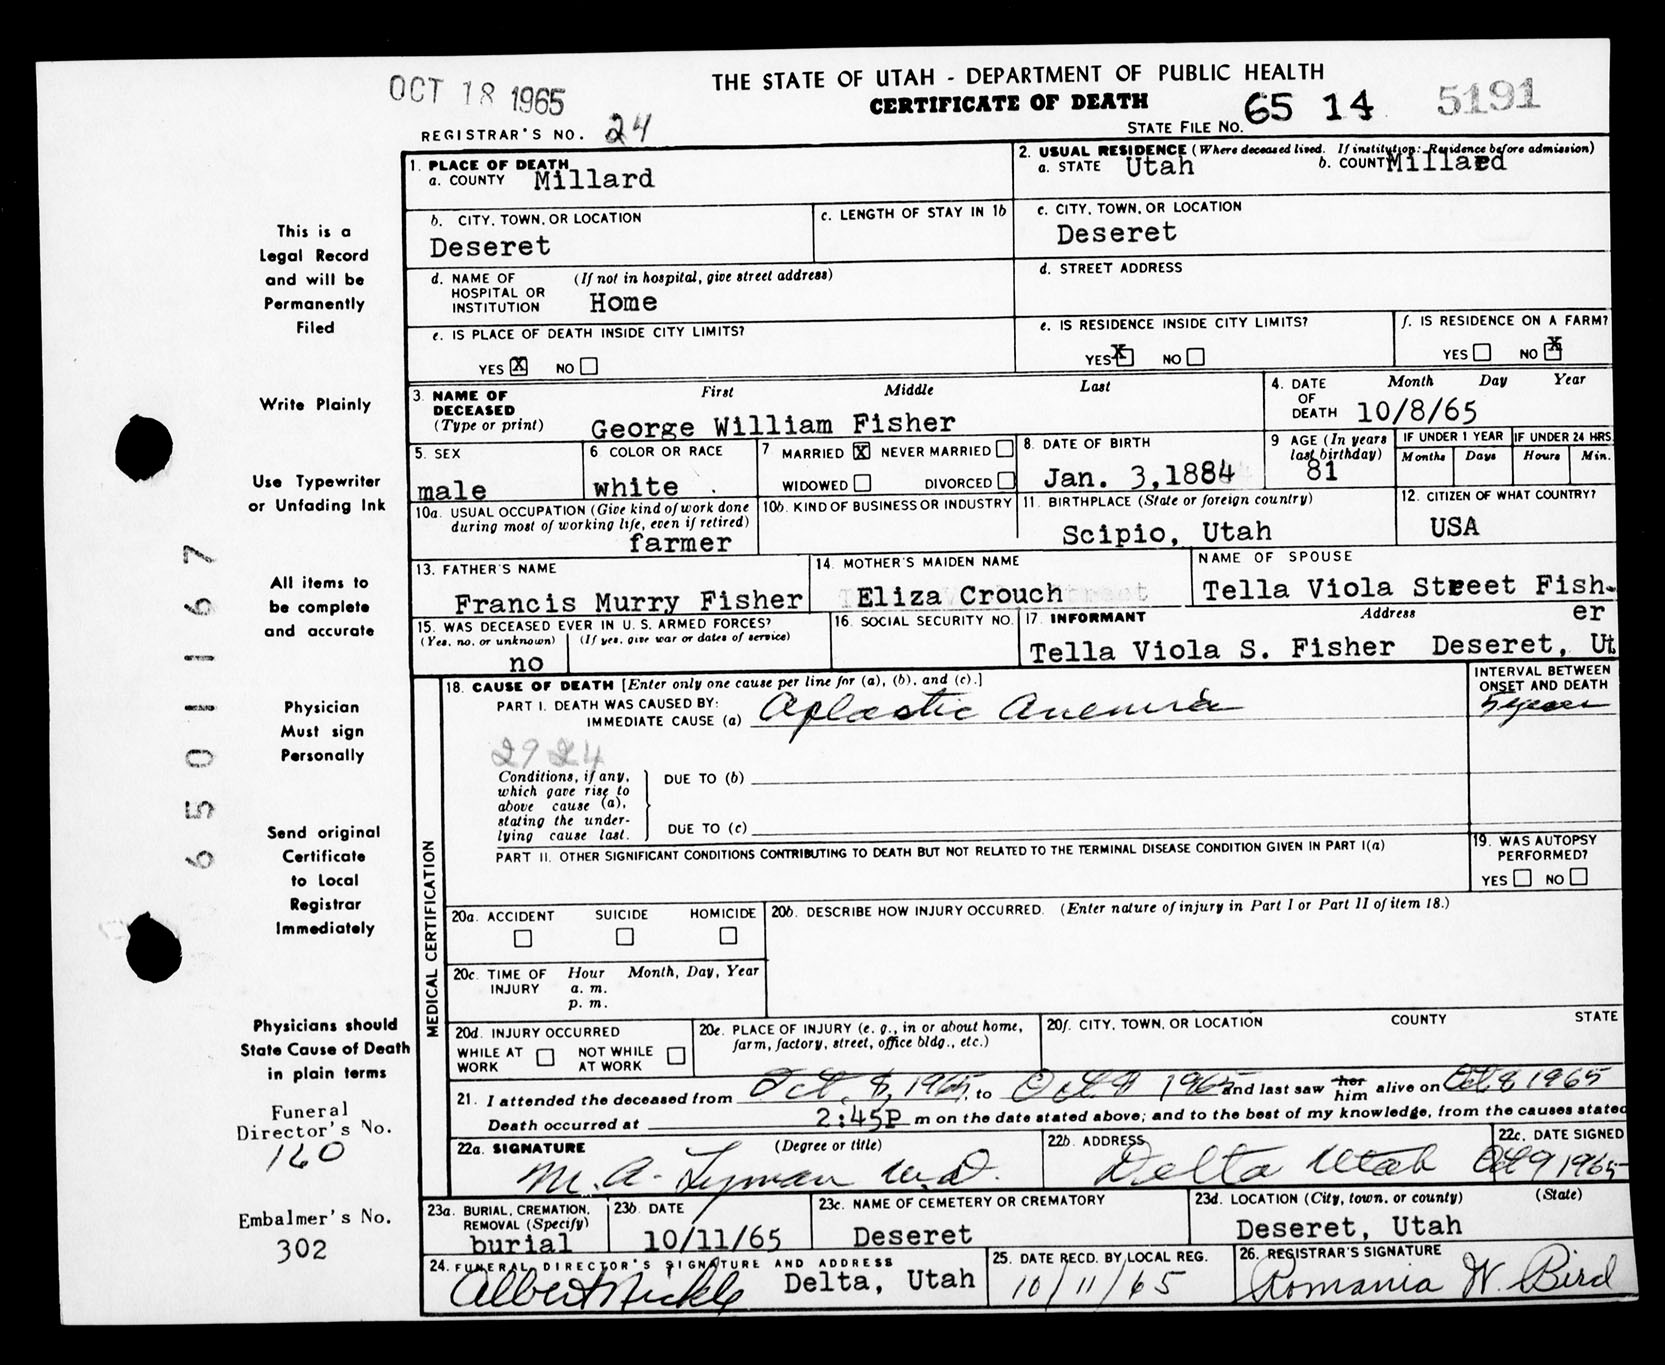 OCT 18 1965
THE STATE OF UTAH - DEPARTMENT OF PUBLIC HEALTH
CERTIFICATE OF DEATH
REGISTRAR'S NO. 24
STATE FILE NO. 65 14 5191
This is a
Legal Record
and will be
Permanently
Filed
Write Plainly
Use Typewriter
or Unfading Ink
All items to
be complete
and accurate
Physician
Must sign
Personally
Send original
Certificate
to Local
Registrar
Immediately
Physicians should
State Cause of Death
in plain terms
Funeral
Director's No.
160
Embalmer's No.
302
65011167
1. PLACE OF DEATH
a. COUNTY Millard
2. USUAL RESIDENCE (Where deceased lived. If institution: Residence before admission)
a. STATE Utah b. COUNTY Millard
b. CITY, TOWN, OR LOCATION
Deseret
c. LENGTH OF STAY IN 1b
c. CITY, TOWN, OR LOCATION
Deseret
d. NAME OF HOSPITAL OR INSTITUTION (If not in hospital, give street address)
Home
d. STREET ADDRESS
e. IS PLACE OF DEATH INSIDE CITY LIMITS?
YES X NO
e. IS RESIDENCE INSIDE CITY LIMITS?
YES X NO
f. IS RESIDENCE ON A FARM?
YES NO X
3. NAME OF DECEASED (Type or print) First Middle Last
George William Fisher
4. DATE OF DEATH Month Day Year
10/8/65
5. SEX
male
6 COLOR OR RACE
white
7 MARRIED X NEVER MARRIED
WIDOWED DIVORCED
8. DATE OF BIRTH
Jan. 3,1884
9 AGE (In years last birthday)
81
IF UNDER 1 YEAR
Months Days
IF UNDER 24 HRS.
Hours Min.
10a. USUAL OCCUPATION (Give kind of work done during most of working life, even if retired)
farmer
10b. KIND OF BUSINESS OR INDUSTRY
11. BIRTHPLACE (State or foreign country)
Scipio, Utah
12. CITIZEN OF WHAT COUNTRY?
USA
13. FATHER'S NAME
Francis Murry Fisher
14. MOTHER'S MAIDEN NAME
Eliza Crouch
NAME OF SPOUSE
Tella Viola Street Fish-
er
15. WAS DECEASED EVER IN U. S. ARMED FORCES?
(Yes, no, or unknown) (If yes, give war or dates of service)
no
16. SOCIAL SECURITY NO.
17. INFORMANT Address
Tella Viola S. Fisher Deseret, Ut
MEDICAL CERTIFICATION
18. CAUSE OF DEATH [Enter only one cause per line for (a), (b), and (c).]
INTERVAL BETWEEN ONSET AND DEATH
PART I. DEATH WAS CAUSED BY:
IMMEDIATE CAUSE (a) Aplastic Anemia
2924
Conditions, if any,
which gave rise to
above cause (a),
stating the under-
lying cause last.
DUE TO (b)
DUE TO (c)
PART II. OTHER SIGNIFICANT CONDITIONS CONTRIBUTING TO DEATH BUT NOT RELATED TO THE TERMINAL DISEASE CONDITION GIVEN IN PART I(a)
19. WAS AUTOPSY PERFORMED?
YES NO
20a. ACCIDENT SUICIDE HOMICIDE
20b. DESCRIBE HOW INJURY OCCURRED. (Enter nature of injury in Part I or Part II of item 18.)
20c. TIME OF INJURY Hour Month, Day, Year
a. m.
p. m.
20d. INJURY OCCURRED
WHILE AT WORK NOT WHILE AT WORK
20e. PLACE OF INJURY (e. g., in or about home, farm, factory, street, office bldg., etc.)
20f. CITY, TOWN, OR LOCATION COUNTY STATE
21. I attended the deceased from Oct. 8, 1965, to Oct 8 1965 and last saw her him alive on Oct 8 1965
Death occurred at 2:45P m on the date stated above; and to the best of my knowledge, from the causes stated
22a. SIGNATURE (Degree or title)
M. A. Lyman M.D.
22b. ADDRESS
Delta Utah
22c. DATE SIGNED
Oct 9 1965
23a. BURIAL, CREMATION, REMOVAL (Specify)
burial
23b. DATE
10/11/65
23c. NAME OF CEMETERY OR CREMATORY
Deseret
23d. LOCATION (City, town, or county) (State)
Deseret, Utah
24. FUNERAL DIRECTOR'S SIGNATURE AND ADDRESS
Albert Nickle Delta, Utah
25. DATE RECD. BY LOCAL REG.
10/11/65
26. REGISTRAR'S SIGNATURE
Romania W. Bird